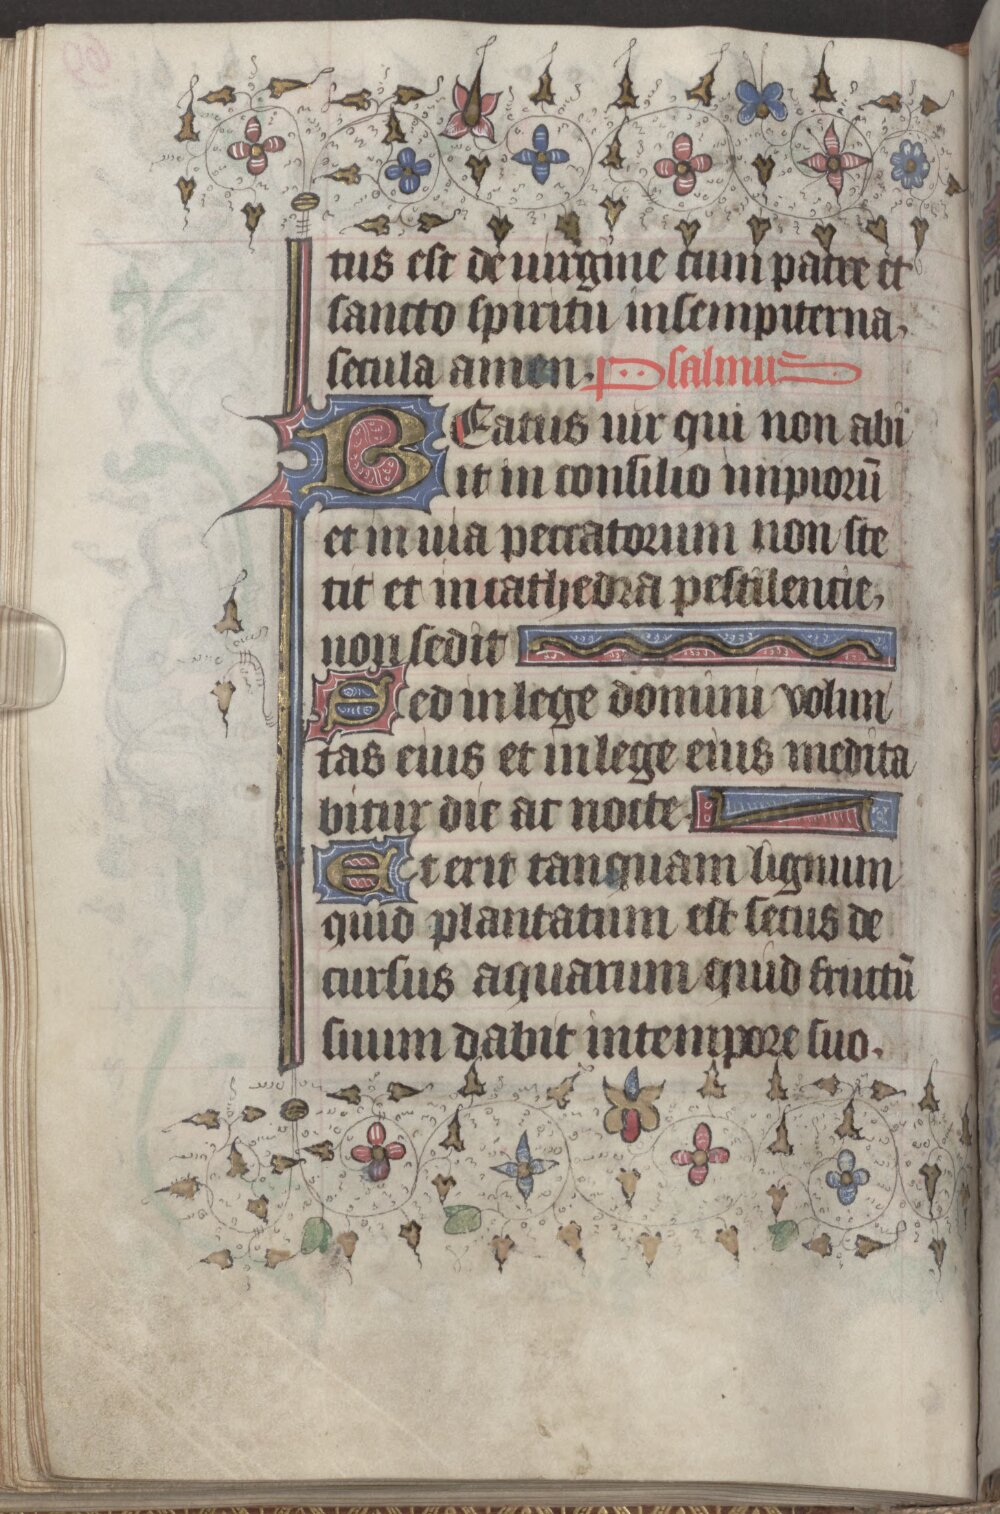 tus est de uirgine cum patre et
sancto spiritu insempiterna,
secula amen. Psalmus
BEatus uir qui non abi
it in consilio impiorū
et in uia peccatorum non ste
tit et in cathedra pestilencie,
non sedit
Sed in lege domini volun
tas eius et in lege eius medita
bitur die ac nocte
Et erit tanquam lignum
quid plantatum est secus de
cursus aquarum quid fructū
suum dabit in tempore suo.